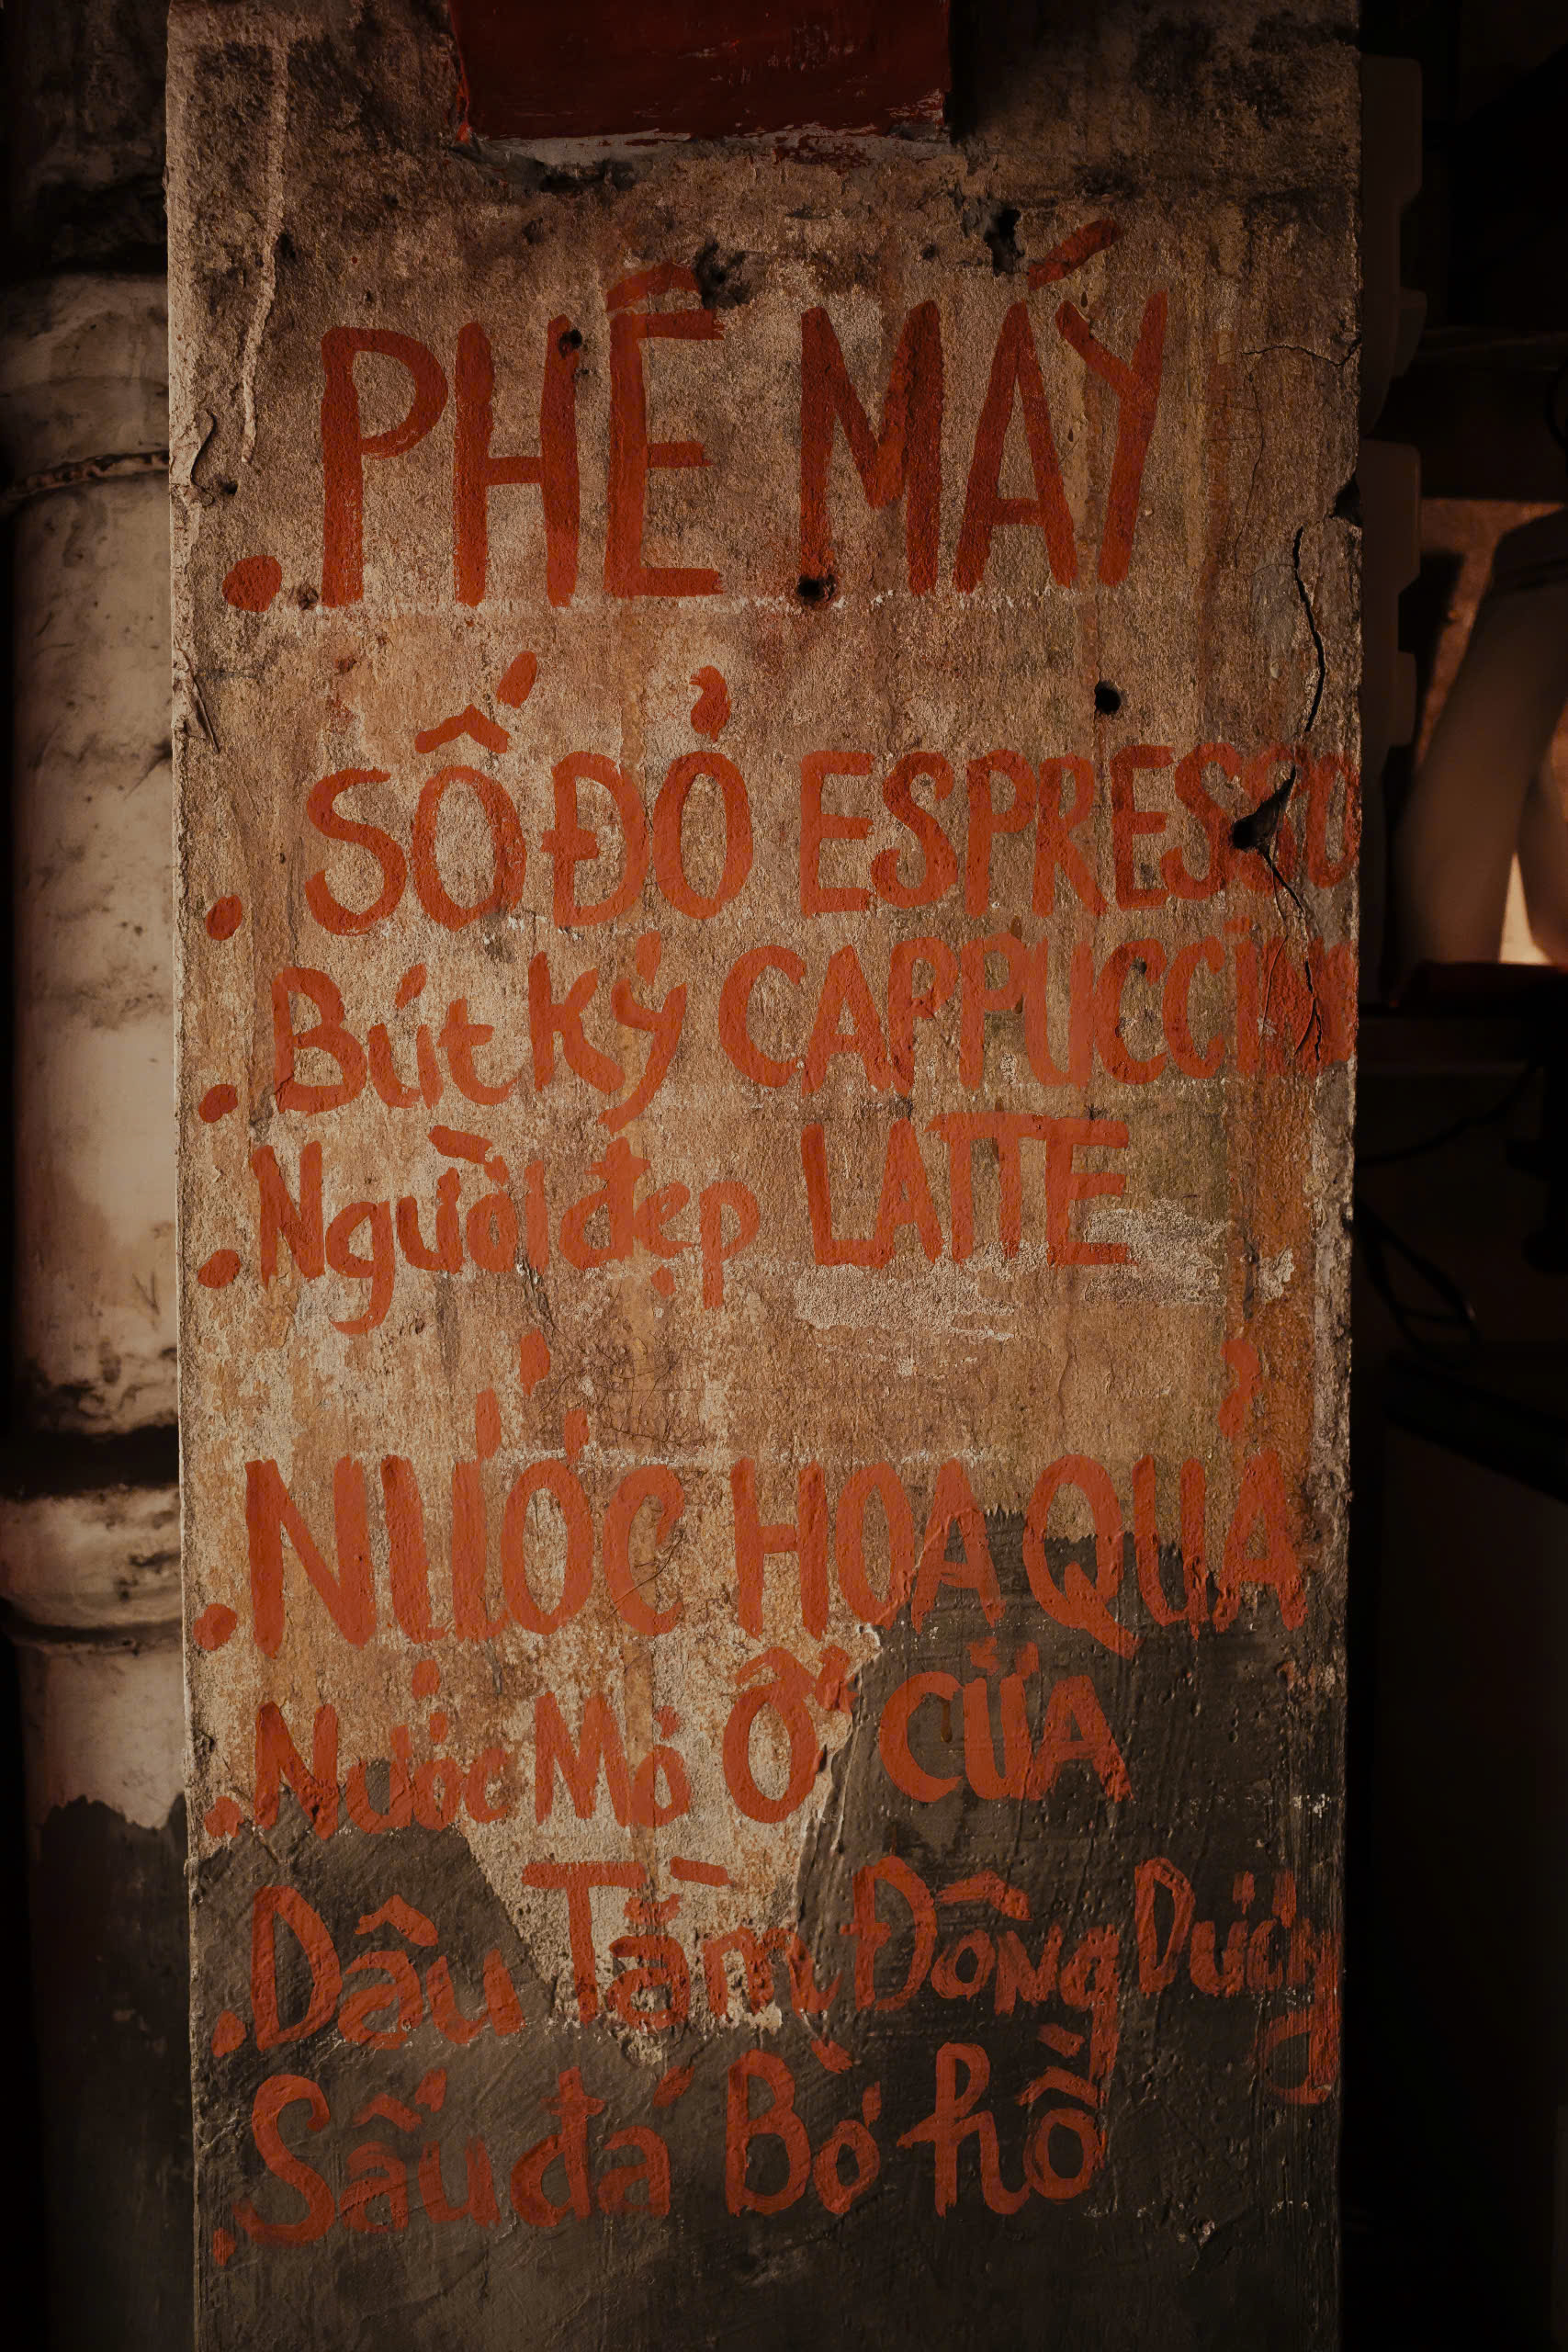 . PHÊ MÁY
. SỐ ĐỎ ESPRESSO
. Bút Ký CAPPUCCINO
. Người đẹp LATTE
. NƯỚC HOA QUẢ
. Nước Mơ Ô CỬA
. Dâu Tằm Đông Dương
. Sấu đá Bờ hồ